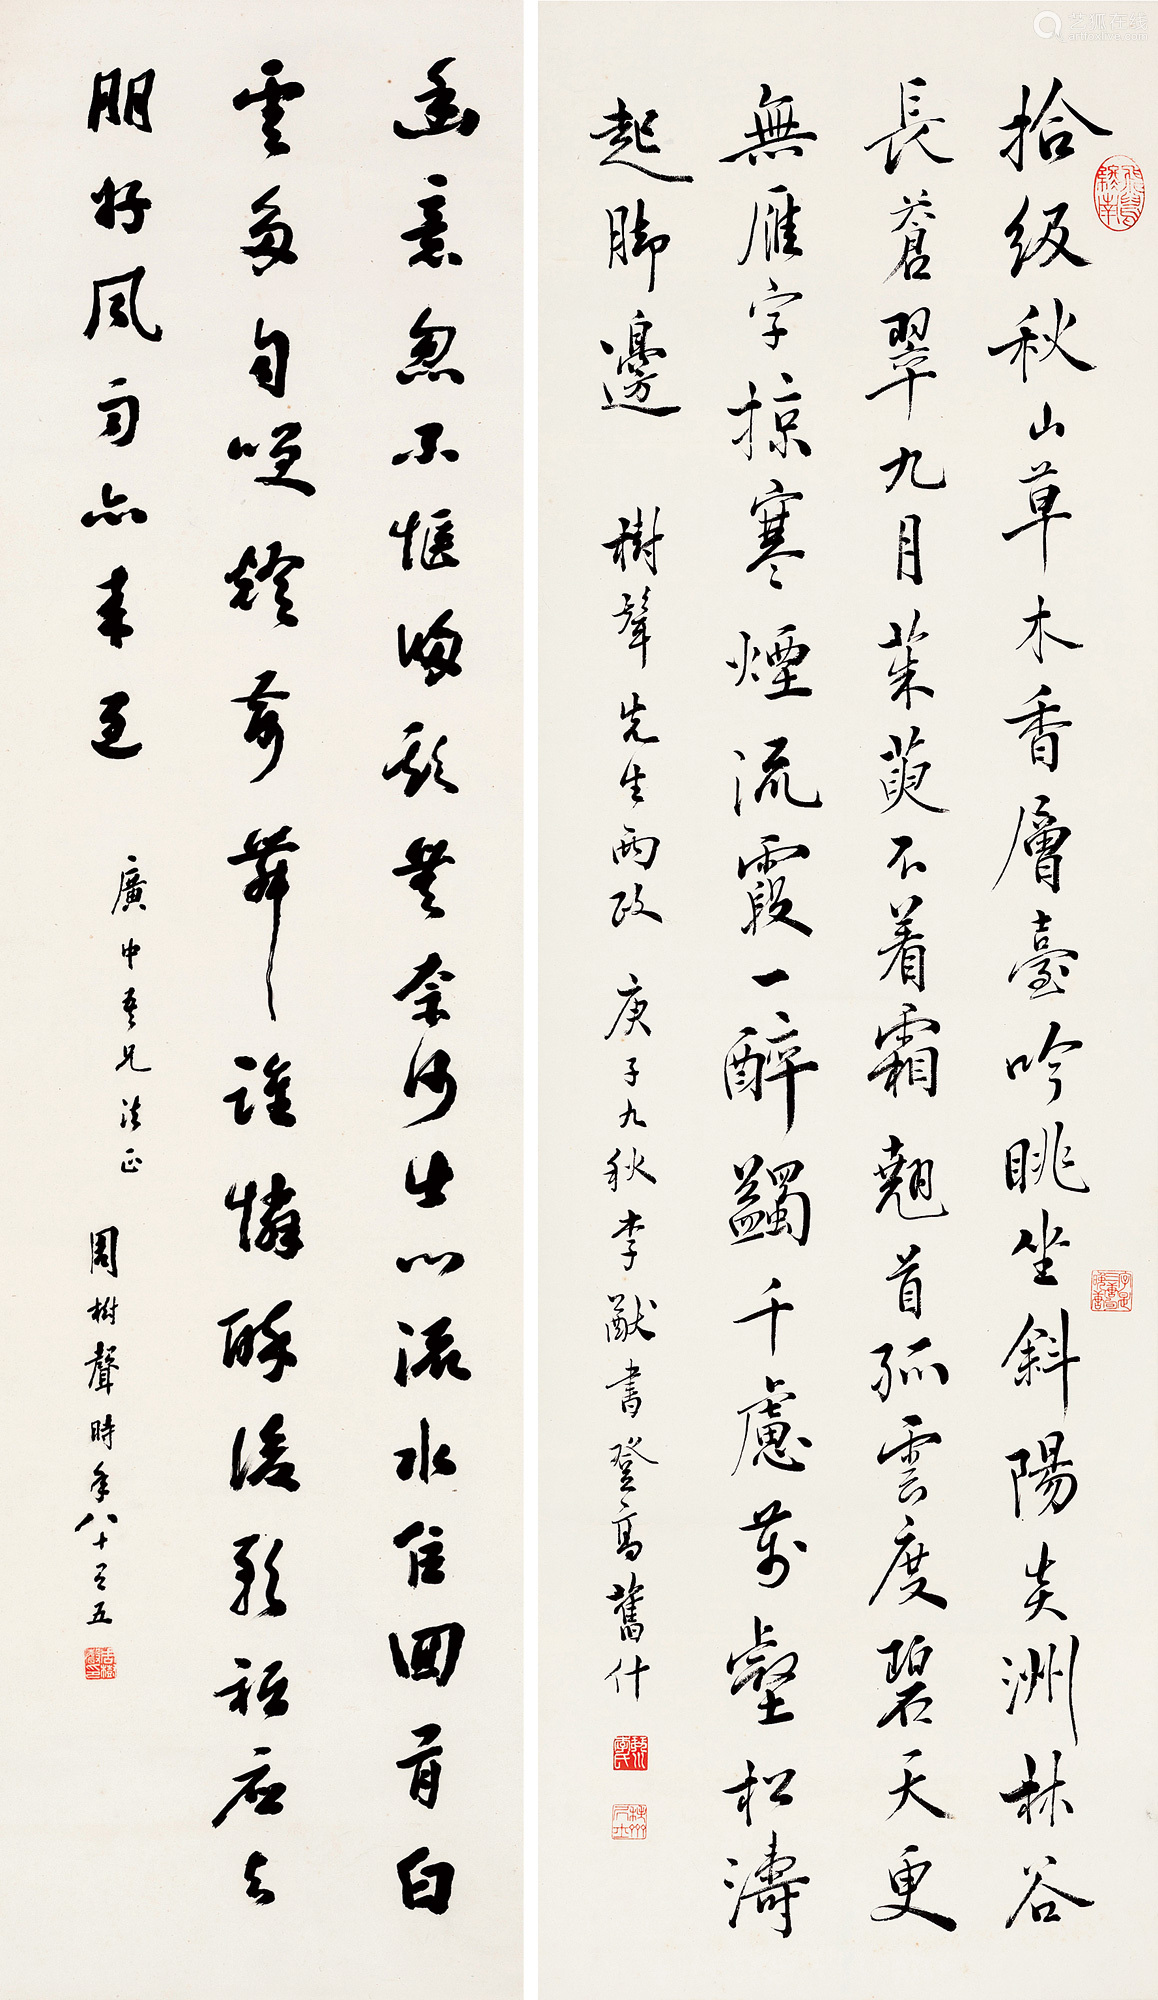 拾級秋山草木香層臺吟眺坐斜陽炎洲林谷
長蒼翠九月茱萸不着霜翹首孤雲度碧天更
無雁字掠寒煙流霞一醉蠲千慮萬壑松濤
起脚邊 樹聲先生两政 庚子九秋李猷書登高舊什
幽意忽不愜歸期無奈何出門流水住回首白
雲多自咲燈前舞誰憐醉後歌祗應与
朋好風雨亦来過 廣中吾兄法正 周樹聲時年八十又五
艺狐在线
artfoxlive.com